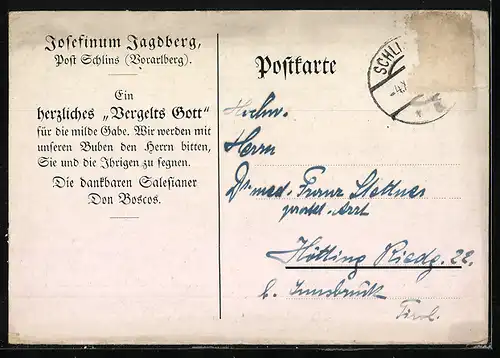 Josefinum Jagdberg,
Post Schlins (Vorarlberg).
Ein
herzliches „Vergelts Gott"
für die milde Gabe. Wir werden mit
unseren Buben den Herrn bitten,
Sie und die Ihrigen zu segnen.
Die dankbaren Salesianer
Don Boscos.
Postkarte
SCHLI
Herrn
Dr med. Franz Stettner
prakt. Arzt
Hötting Riedg. 22.
b. Innsbruck
Tirol.